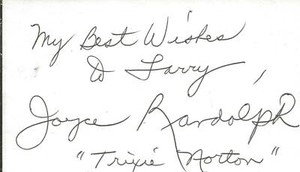 My Best Wishes
To Larry,
Joyce Randolph
"Trixie Norton"